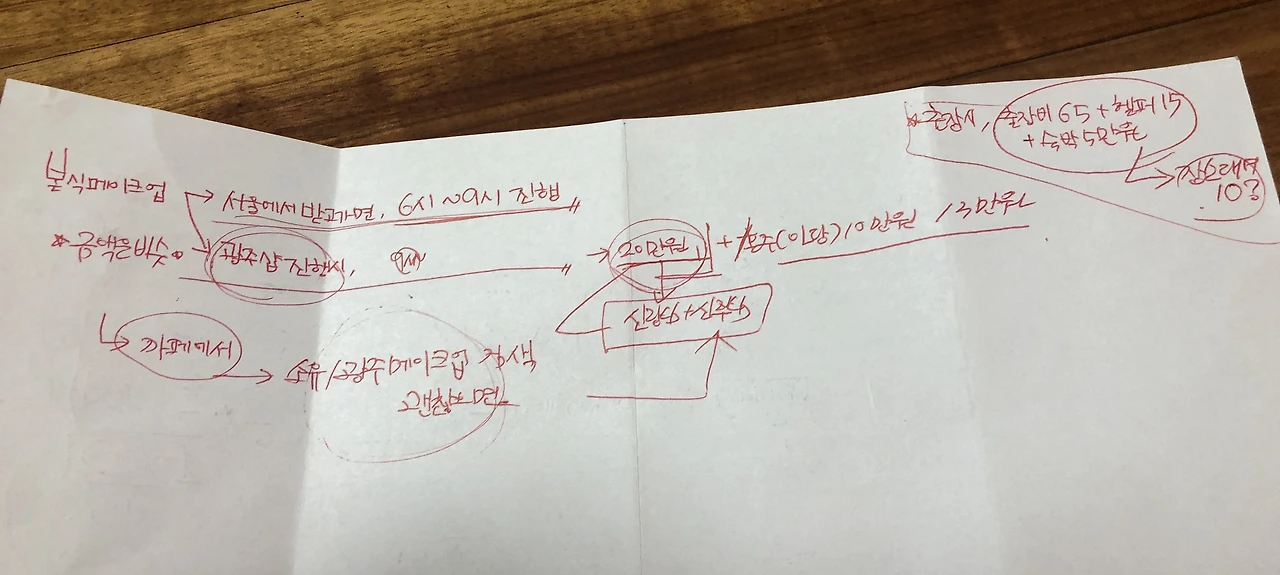 본식메이크업
서울에서 받고가면, 6시~9시 진행
* 금액은비슷.
광주샵 진행시,
20만원 + 혼주(인당) 10만원 / 3만원
신랑 + 신부
까페에서
소유/광주메이크업 검색
괜찮으면
* 출장시, 출장비 65 + 헬퍼 15
+ 숙박 5만원
10?